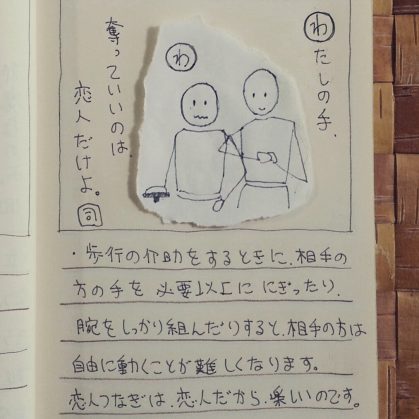 わたしの手、
奪っていいのは、
恋人だけよ。司
わ
・歩行の介助をするときに、相手の
方の手を必要以上ににぎったり、
腕をしっかり組んだりすると、相手の方は
自由に動くことが難しくなります。
恋人つなぎは、恋人だから、楽しいのです。